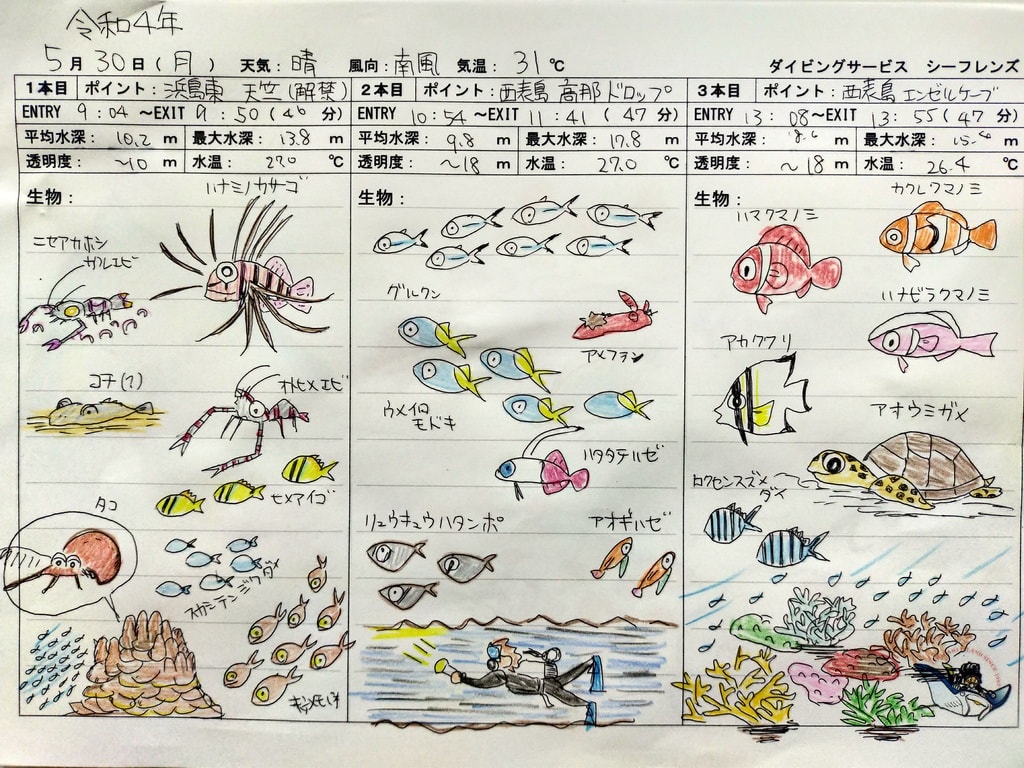 令和4年
5月30日(月) 天気:晴 風向:南風 気温:31℃ ダイビングサービス シーフレンズ
1本目 ポイント:浜島東 天竺(解禁)
ENTRY 9:04~EXIT 9:50(46分)
平均水深:10.2m 最大水深:13.8m
透明度:~10m 水温:27.0℃
生物:
ハナミノカサゴ
ニセアカホシ
カクレエビ
コチ(?)
オトヒメエビ
ヒメアイゴ
タコ
スカシテンジクダイ
キンメモドキ
2本目 ポイント:西表島 高那ドロップ
ENTRY 10:54~EXIT 11:41(47分)
平均水深:9.8m 最大水深:17.8m
透明度:~18m 水温:27.0℃
生物:
グルクン
アメフラシ
ウメイロ
モドキ
ハタタテハゼ
リュウキュウハタンポ
アオギハゼ
3本目 ポイント:西表島 エンゼルケーブ
ENTRY 13:08~EXIT 13:55(47分)
平均水深: m 最大水深: m
透明度:~18m 水温:26.4℃
生物:
カクレクマノミ
ハマクマノミ
ハナビラクマノミ
アオウミガメ
ロクセンスズメ
ダイ